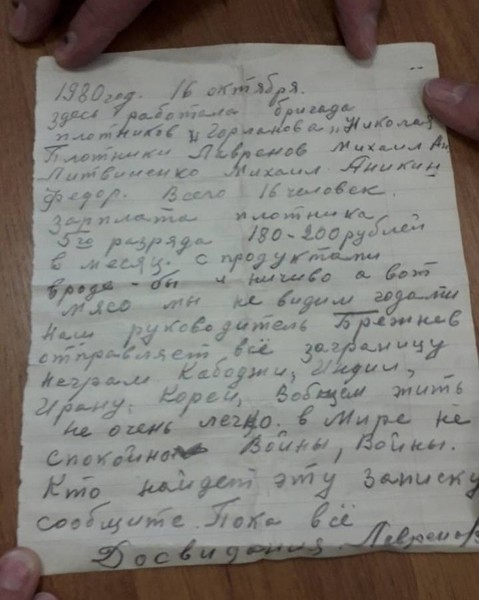 1980 год. 16 октября.
Здесь работала бригада
плотников „Горланова„ Николая
Плотники Лавренов Михаил Ан
Литвиненко Михаил. Аникин
Федор. Всего 16 человек.
Зарплата плотника
5го разряда 180-200 рублей
в месяц. с продуктами
вроде-бы и ничиво а вот
мясо мы не видим годами
Наш руководитель Брежнев
отправляет всё заграницу
неграм Кабоджи, Индии,
Ирану, Кореи, Вобщем жить
не очень легко. в Мире не
спокойно Войны, Войны.
Кто найдет эту записку
сообщите. Пока всё
Досвидания. Лавренов